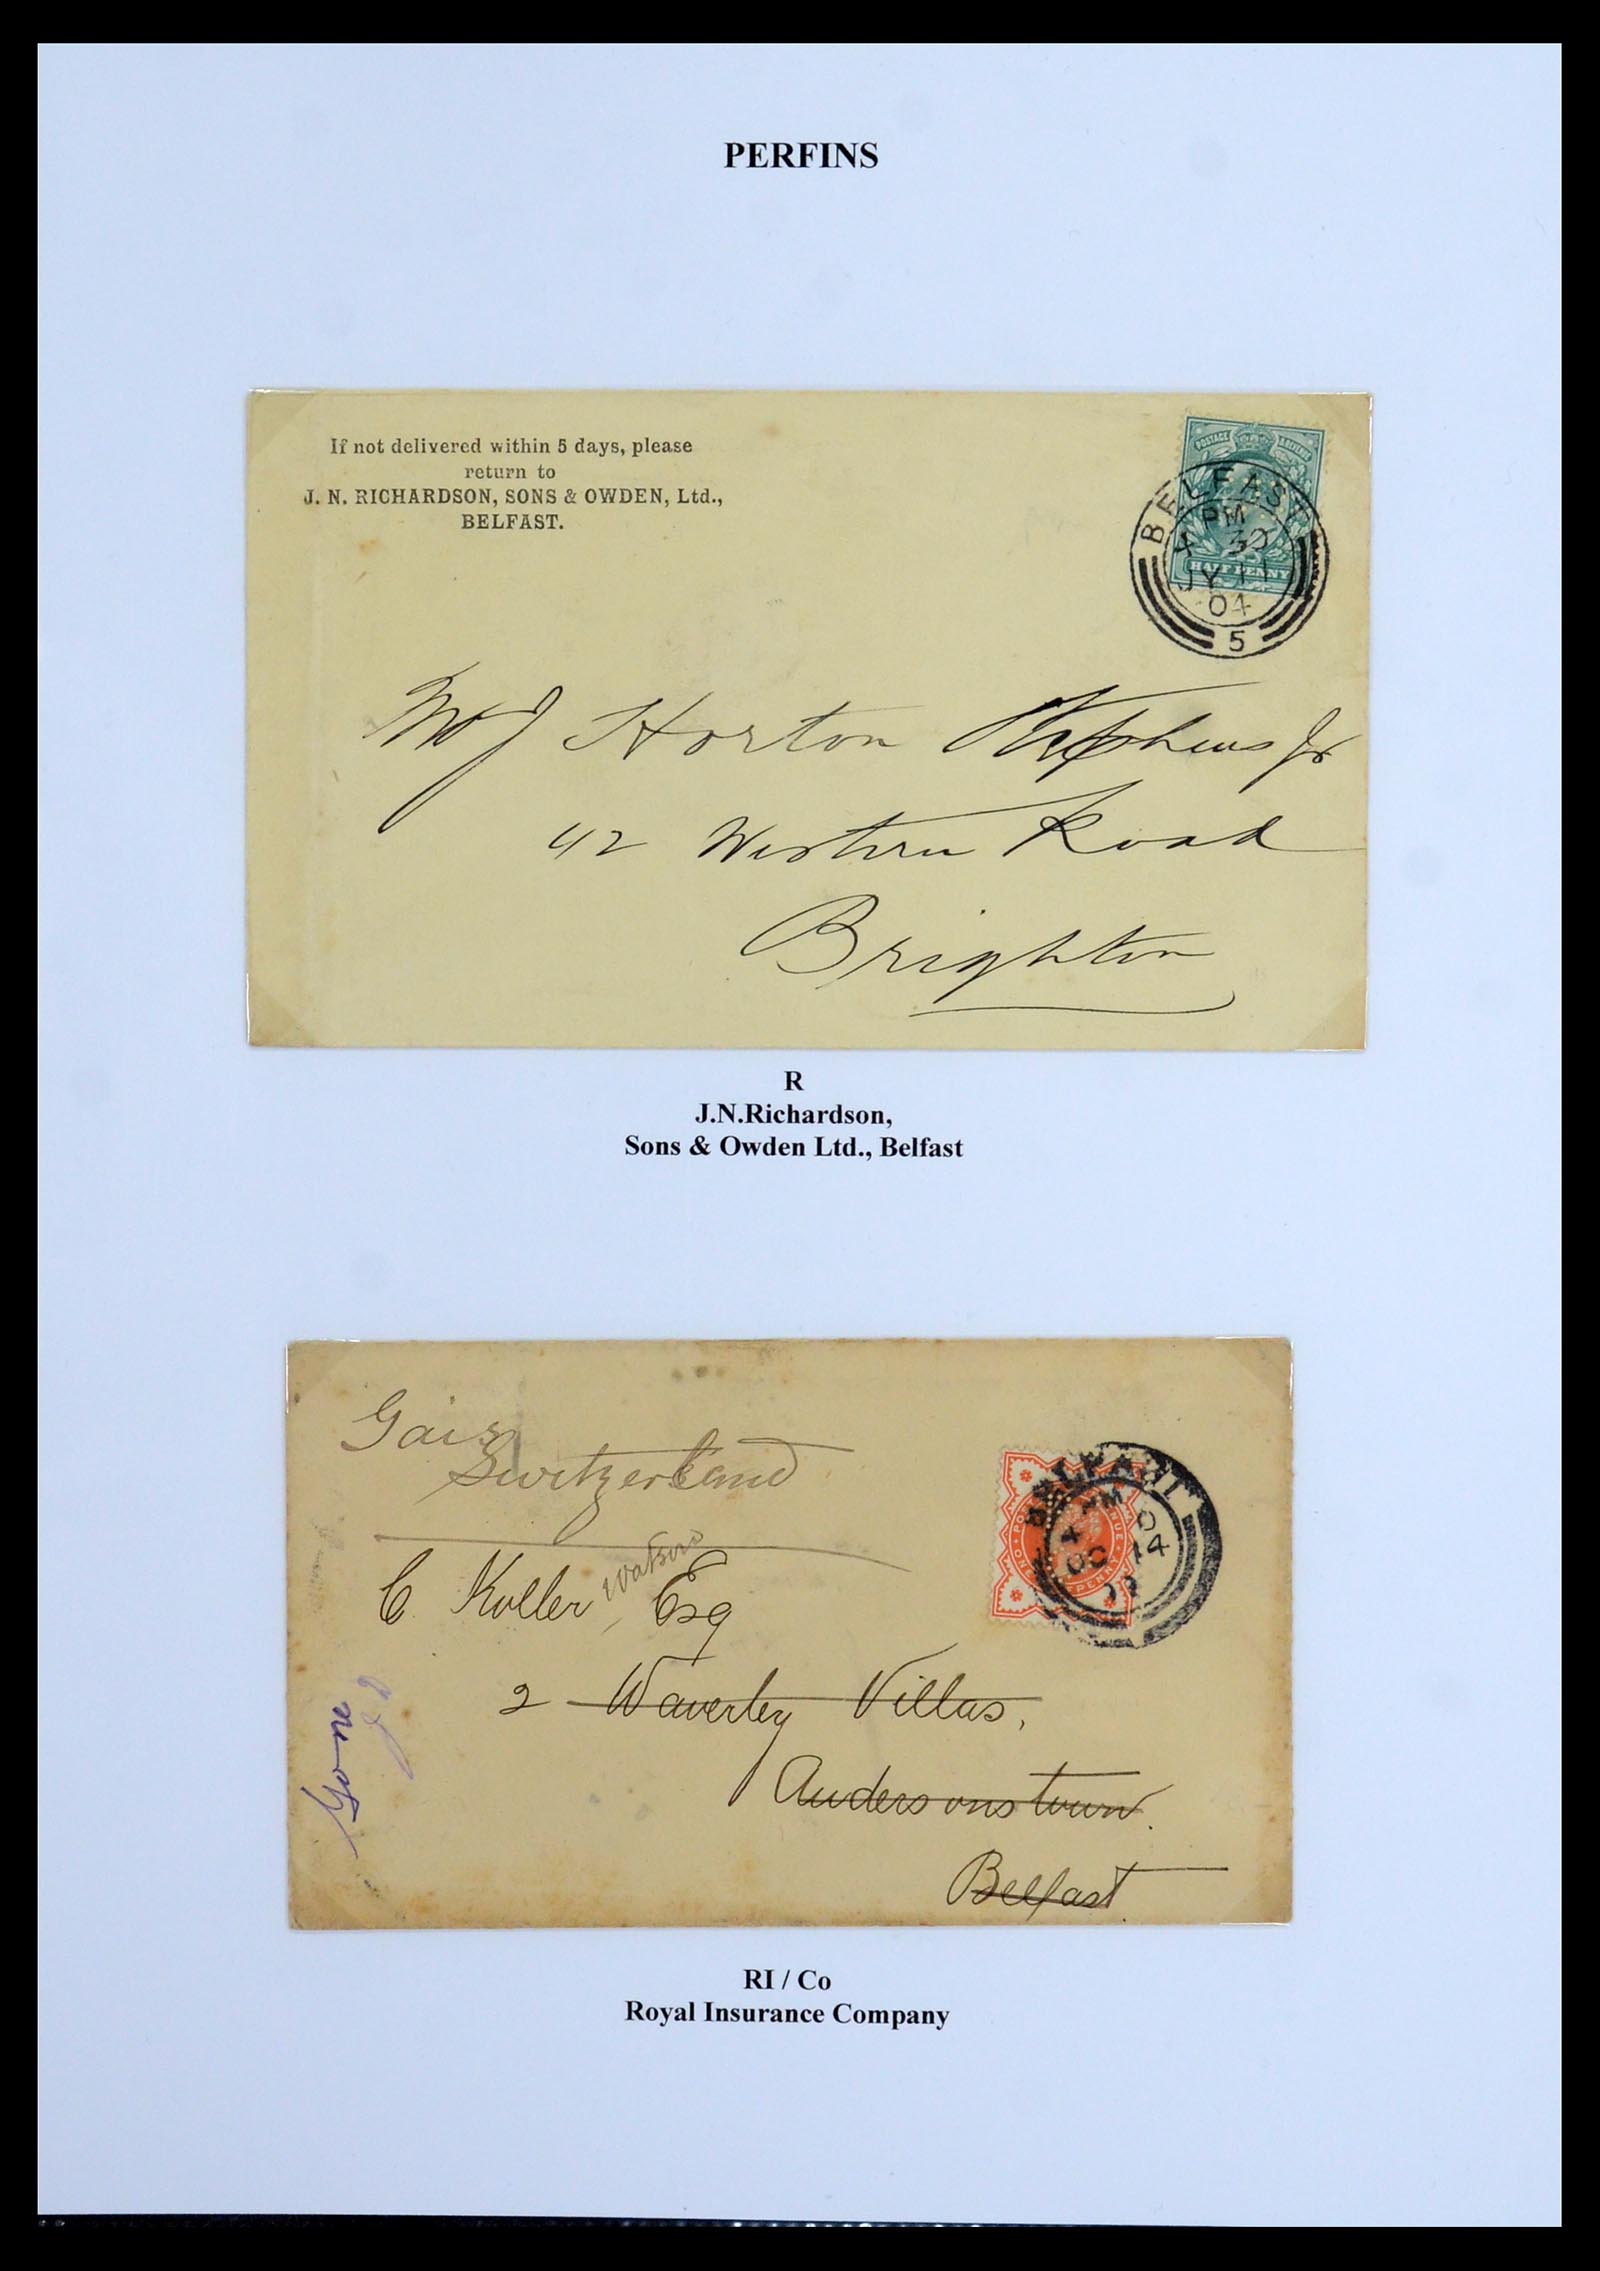 PERFINS
If not delivered within 5 days, please
return to
J. N. RICHARDSON, SONS & OWDEN, Ltd.,
BELFAST.
POSTAGE REVENUE
HALF PENNY
BELFAST
PM
X 30
JY 11
04
5
Mr J Horton Stephens Jr
42 Western Road
Brighton
R
J.N.Richardson,
Sons & Owden Ltd., Belfast
Gais
Switzerland
C. Koller Esq
2 Waverley Villas,
Andersonstown.
Belfast
Gone
BELFAST
PM
OC 14
RI / Co
Royal Insurance Company